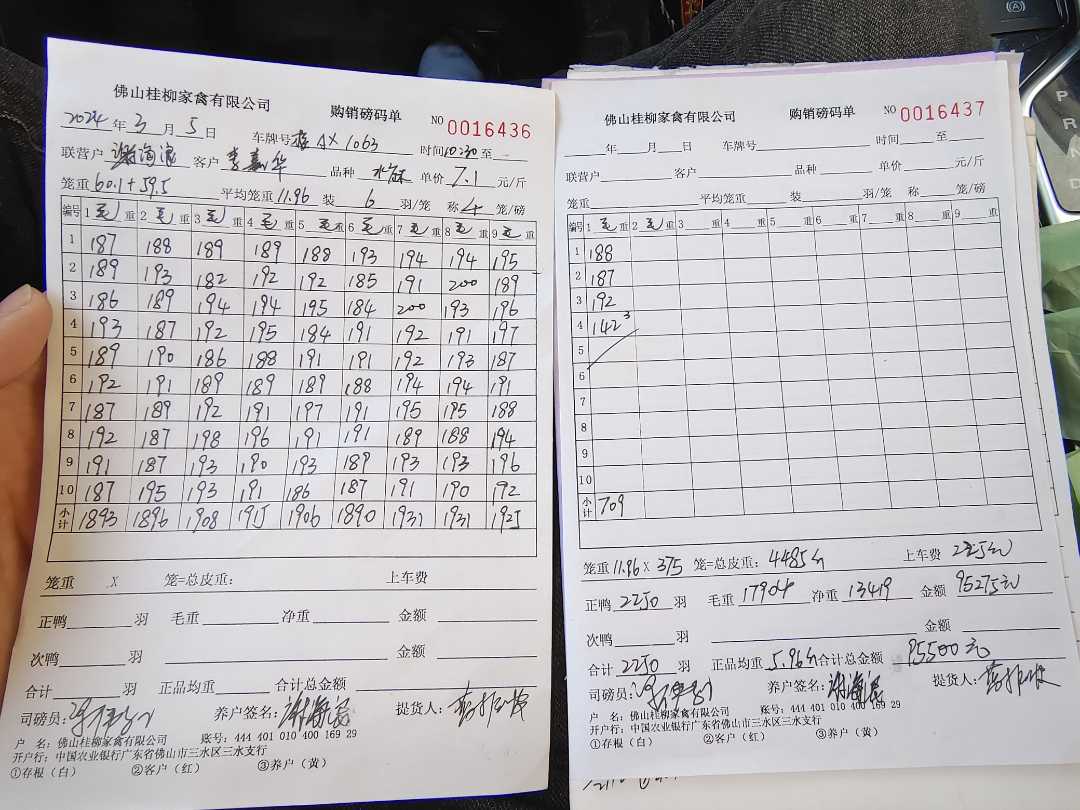 佛山桂柳家禽有限公司 购销磅码单 NO 0016436
2024年3月5日 车牌号 AX1063 时间10:30至
联营户 客户 李嘉华 品种 单价7.1元/斤
笼重60.1+59.5 平均笼重11.96 装6羽/笼 称4笼/磅
编号 1毛重 2毛重 3毛重 4毛重 5毛重 6毛重 7毛重 8毛重 9毛重
1 187 188 189 189 188 193 194 194 195
2 189 193 182 192 192 185 191 200 189
3 186 189 194 194 195 184 200 193 196
4 193 187 192 195 184 191 192 191 197
5 189 190 186 188 191 191 192 193 187
6 192 191 189 189 189 188 194 194 191
7 187 189 192 191 197 191 195 195 188
8 192 187 198 196 191 191 189 188 194
9 191 187 193 190 193 189 193 193 196
10 187 195 193 191 186 187 191 190 192
小计 1893 1896 1908 1915 1906 1890 1931 1931 1925
笼重 X 笼=总皮重: 上车费
正鸭 羽 毛重 净重 金额
次鸭 羽 金额
合计 羽 正品均重 合计总金额
司磅员: 养户签名: 提货人:
户 名:佛山桂柳家禽有限公司 账号:444 401 010 400 169 29
开户行:中国农业银行广东省佛山市三水区三水支行
①存根(白) ②客户(红) ③养户(黄)
佛山桂柳家禽有限公司 购销磅码单 NO 0016437
年 月 日 车牌号 时间 至
联营户 客户 品种 单价 元/斤
笼重 平均笼重 装 羽/笼 称 笼/磅
编号 1毛重 2毛重 3 重 4 重 5 重 6 重 7 重 8 重 9 重
1 188
2 187
3 192
4 142 3
5
6
7
8
9
10
小计 709
笼重11.96X375 笼=总皮重:4485斤 上车费225元
正鸭2250羽 毛重17904 净重13419 金额95275元
次鸭 羽 金额
合计2250羽 正品均重5.96斤 合计总金额95500元
司磅员: 养户签名: 提货人:
户 名:佛山桂柳家禽有限公司 账号:444 401 010 400 169 29
开户行:中国农业银行广东省佛山市三水区三水支行
①存根(白) ②客户(红) ③养户(黄)
P
R
N
D